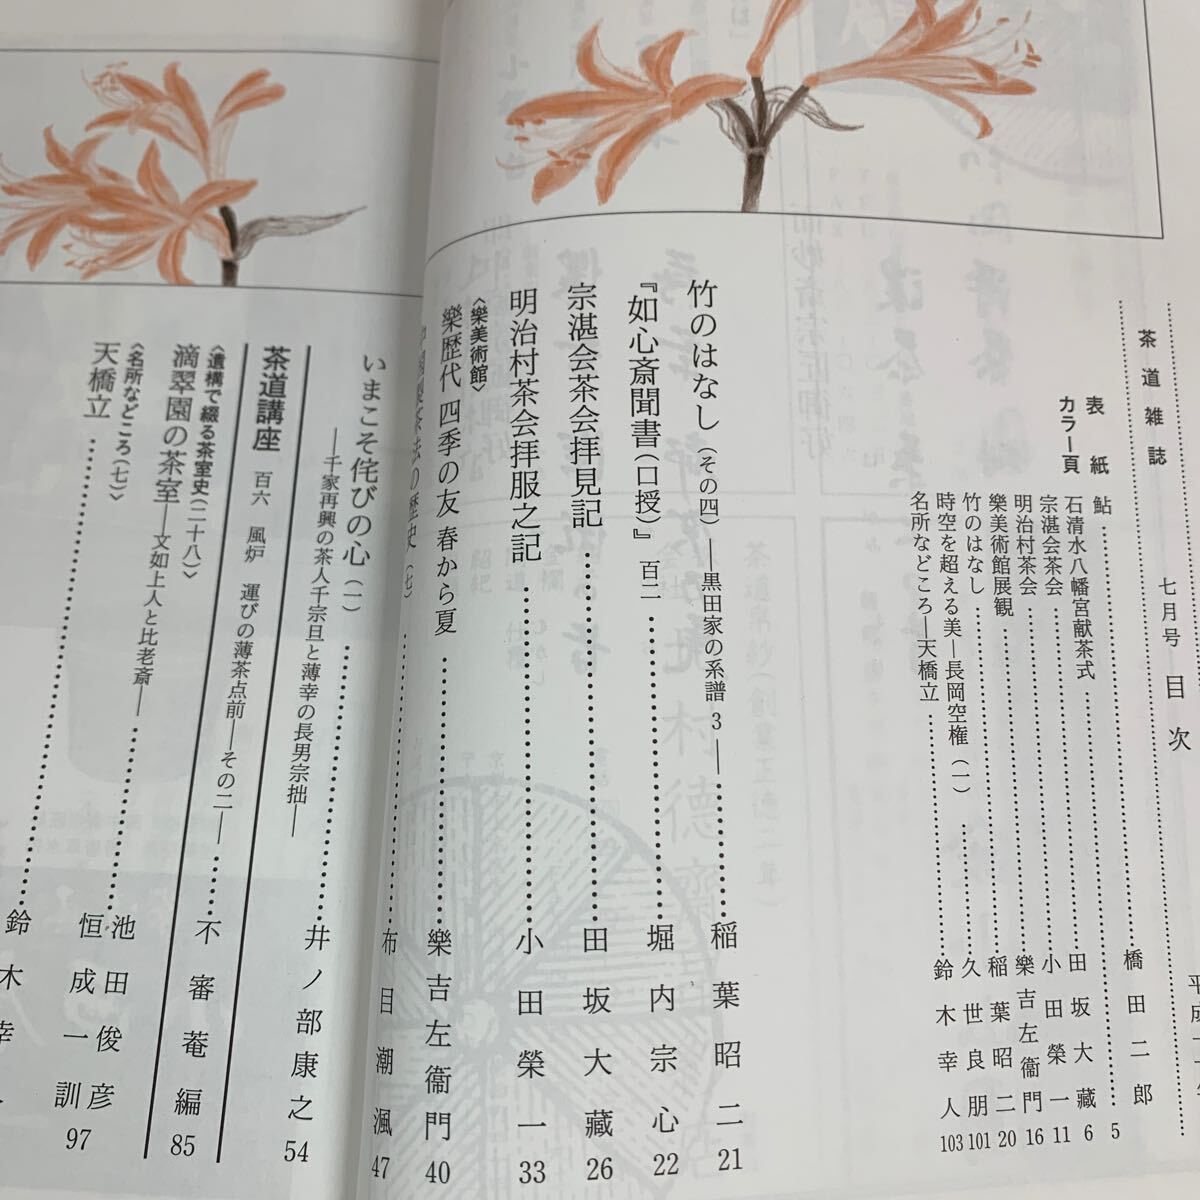 茶道雑誌
七月号 目次
表紙 鮎 橋田二郎 5
カラー頁
石清水八幡宮献茶式 田坂大藏 6
宗湛会茶会 小田榮一 11
明治村茶会
樂美術館展観 樂吉左衞門 16
竹のはなし 稲葉昭二 20
時空を超える美―長岡空権（一） 久世良朋 101
名所などころ―天橋立 鈴木幸人 103
竹のはなし（その四）―黒田家の系譜 3― 稲葉昭二 21
『如心斎聞書（口授）』 百二 堀内宗心 22
宗湛会茶会拝見記 田坂大藏 26
明治村茶会拝服之記 小田榮一 33
〈樂美術館〉
樂歴代 四季の友 春から夏 樂吉左衞門 40
中國製茶法の歴史（七） 布目潮渢 47
いまこそ侘びの心（一） 井ノ部康之 54
―千家再興の茶人千宗旦と薄幸の長男宗拙―
茶道講座 百六 風炉 運びの薄茶点前―その二― 不審菴編 85
〈遺構で綴る茶室史（二十八）〉
滴翠園の茶室―文如上人と比老斎― 池田俊彦
恒成一訓 97
〈名所などころ（七）〉
天橋立 鈴木幸